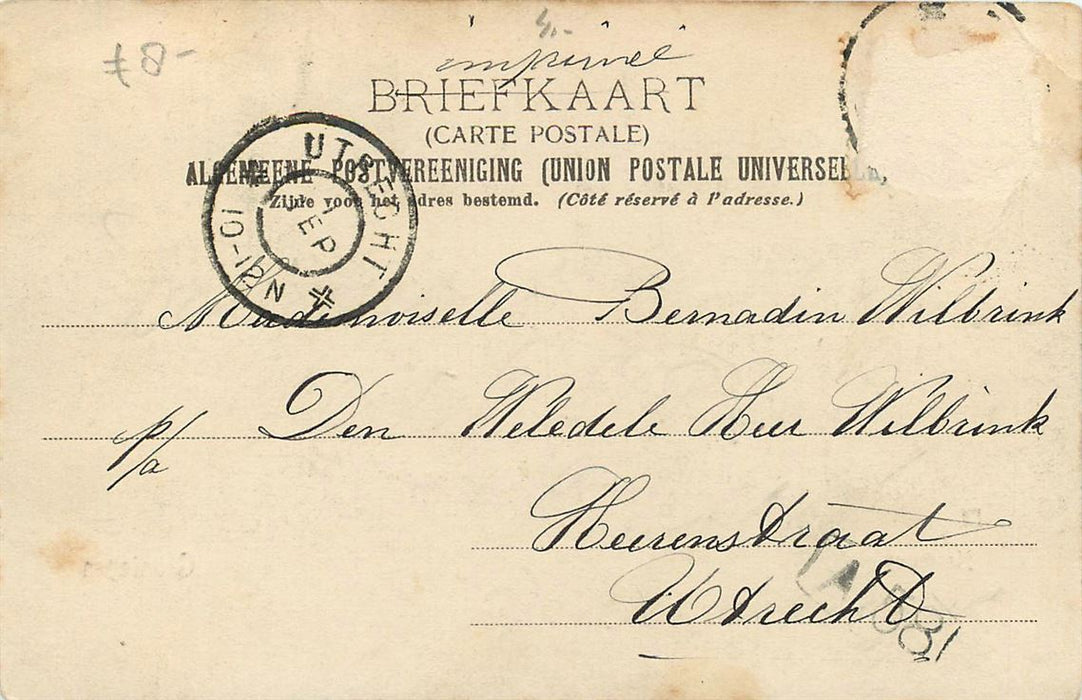 ƒ8-
imprimé
BRIEFKAART
(CARTE POSTALE)
ALGEMEENE POSTVEREENIGING (UNION POSTALE UNIVERSELLE,
Zijde voor het adres bestemd. (Côté réservé à l'adresse.)
UTRECHT
1
SEP
10-12N
01
Mademoiselle Bernadin Wilbrink
p/a Den Weledele Heer Wilbrink
Heerenstraat
Utrecht